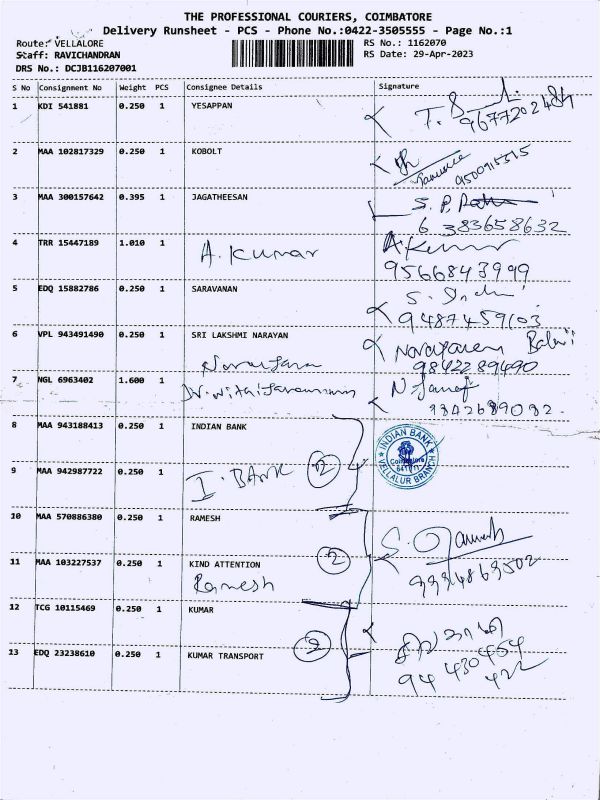 THE PROFESSIONAL COURIERS, COIMBATORE
Delivery Runsheet - PCS - Phone No.:0422-3505555 - Page No.:1
Route: VELLALORE RS No.: 1162070
Staff: RAVICHANDRAN RS Date: 29-Apr-2023
DRS No.: DCJB116207001
S No Consignment No Weight PCS Consignee Details Signature
1 KDI 541881 0.250 1 YESAPPAN
2 MAA 102817329 0.250 1 KOBOLT
9500715515
3 MAA 300157642 0.395 1 JAGATHEESAN S. P.
6383658632
4 TRR 15447189 1.010 1 A. Kumar A. Kumar
9566843999
5 EDQ 15882786 0.250 1 SARAVANAN
9487459103
6 VPL 943491490 0.250 1 SRI LAKSHMI NARAYAN Narayanan Balaji
9842289490
7 NGL 6963402 1.600 1
9342689092
8 MAA 943188413 0.250 1 INDIAN BANK
INDIAN BANK
Coimbatore
641111
VELLALUR BRANCH
9 MAA 942987722 0.250 1 I. BANK 2
10 MAA 570886380 0.250 1 RAMESH S.
11 MAA 103227537 0.250 1 KIND ATTENTION 2
Ramesh 9994863502
12 TCG 10115469 0.250 1 KUMAR
13 EDQ 23238610 0.250 1 KUMAR TRANSPORT 2
94 430454
422